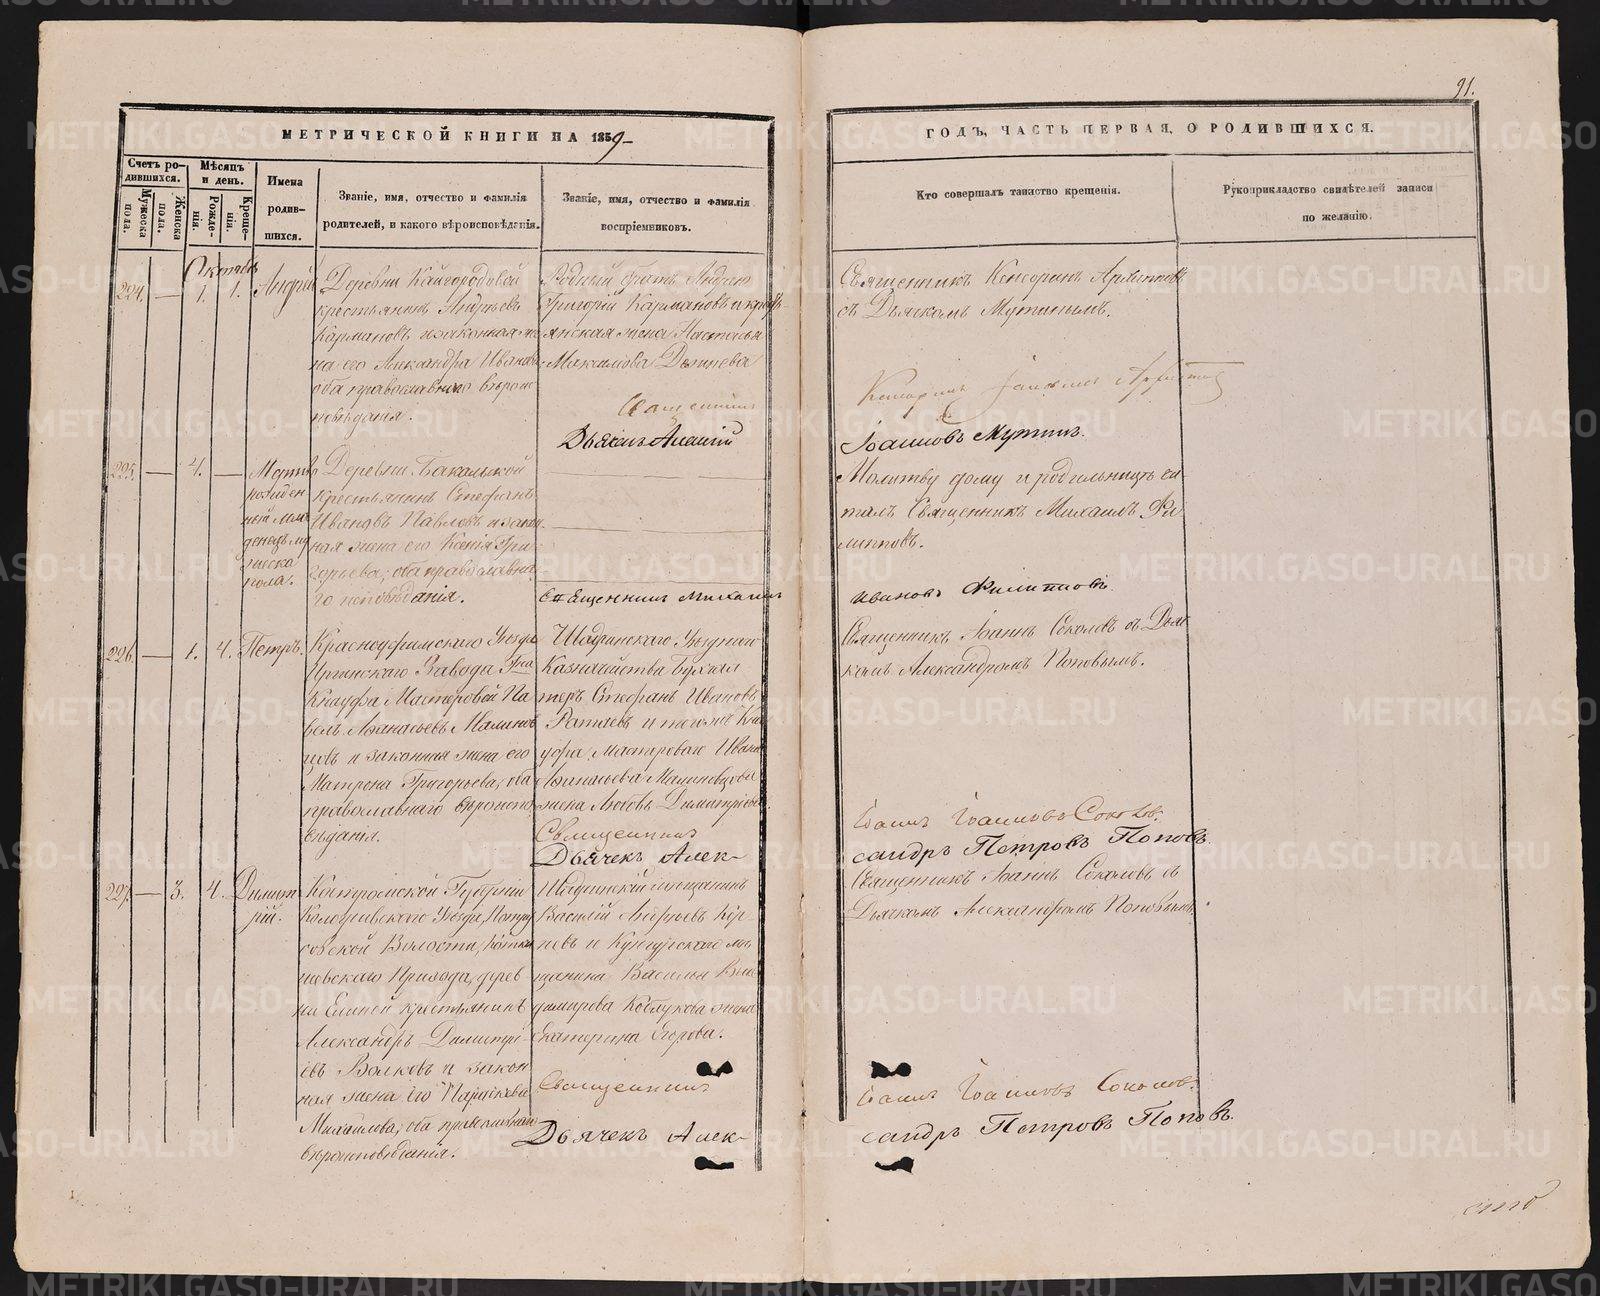 91.
МЕТРИЧЕСКОЙ КНИГИ НА 1859
ГОДЪ, ЧАСТЬ ПЕРВАЯ, О РОДИВШИХСЯ.
Счетъ ро-
дившихся.
Мужеска
пола.
Женска
пола.
Мѣсяцъ
и день.
Рожде-
нія.
Креще-
нія.
Имена
родив-
шихся.
Званіе, имя, отчество и фамилія
родителей, и какого вѣроисповѣданія.
Званіе, имя, отчество и фамилія
воспріемниковъ.
Кто совершалъ таинство крещенія.
Рукоприкладство свидѣтелей записи
по желанію.
Октябрь
294. — 1. 1. Андрей
Деревни Кайгородовой
крестьянинъ Андреевъ
Кармановъ и законная же
на его Александра Иванова
оба православнаго вѣроис
повѣданія.
Родный братъ Андрей
Григорій Кармановъ и крестъ-
янская жена Настасья
Максимова
Священникъ Кенсоринъ
съ Дьячкомъ Мутинымъ.
Священникъ
Дьячекъ Алексій
Іоанновъ Мутинъ.
295. — 4. — Мертво
рожден
ный мла
денецъ му
жеска
пола.
Деревни Бакальской
крестьянинъ Стефанъ
Ивановъ Павловъ и закон
ная жена его Ксенія Гри
горьева, оба православна
го исповѣданія.
Молитву дому и родильницѣ чи
талъ Священникъ Михаилъ Фи
липповъ.
Священникъ Михаилъ
Ивановъ Филипповъ
296. — 1. 4. Петръ.
Красноуфимскаго Уѣзда
Иргинскаго Завода Гна
Кнауфа Мастеровой Па
велъ Афанасьевъ Малинов
цовъ и законная жена его
Матрона Григорьева, оба
православнаго вѣроиспо
вѣданія.
Шадринскаго Уѣзднаго
Казначейства Бухгал
теръ Стефанъ Ивановъ
Рапаевъ и тогоже Кна
уфа мастероваго Ивана
Афанасьева Малиновцова
жена Любовь Димитріева.
Священникъ Іоаннъ Соколовъ съ Дьяч
комъ Александромъ Поповымъ.
Священникъ
Дьячекъ Алек-
Іоаннъ Іоанновъ Соколовъ.
сандръ Петровъ Поповъ.
297. — 3. 4. Димит
рій.
Костромской Губерніи
Кологривскаго Уѣзда,
совской Волости,
новскаго Прихода, дерев
ни Елиной крестьянинъ
Александръ Димитрі
евъ Волковъ и закон
ная жена его Параскева
Михайлова, оба православнаго
вѣроисповѣданія.
Шадринскій мѣщанинъ
Василій Андреевъ
и Кунгурскаго мѣ
щанина Василья Вла
димирова Коблукова жена
Екатерина Егорова.
Священникъ Іоаннъ Соколовъ съ
Дьячкомъ Александромъ Поповымъ.
Священникъ
Дьячекъ Алек-
Іоаннъ Іоанновъ Соколовъ.
сандръ Петровъ Поповъ.
METRIKI.GASO-URAL.RU